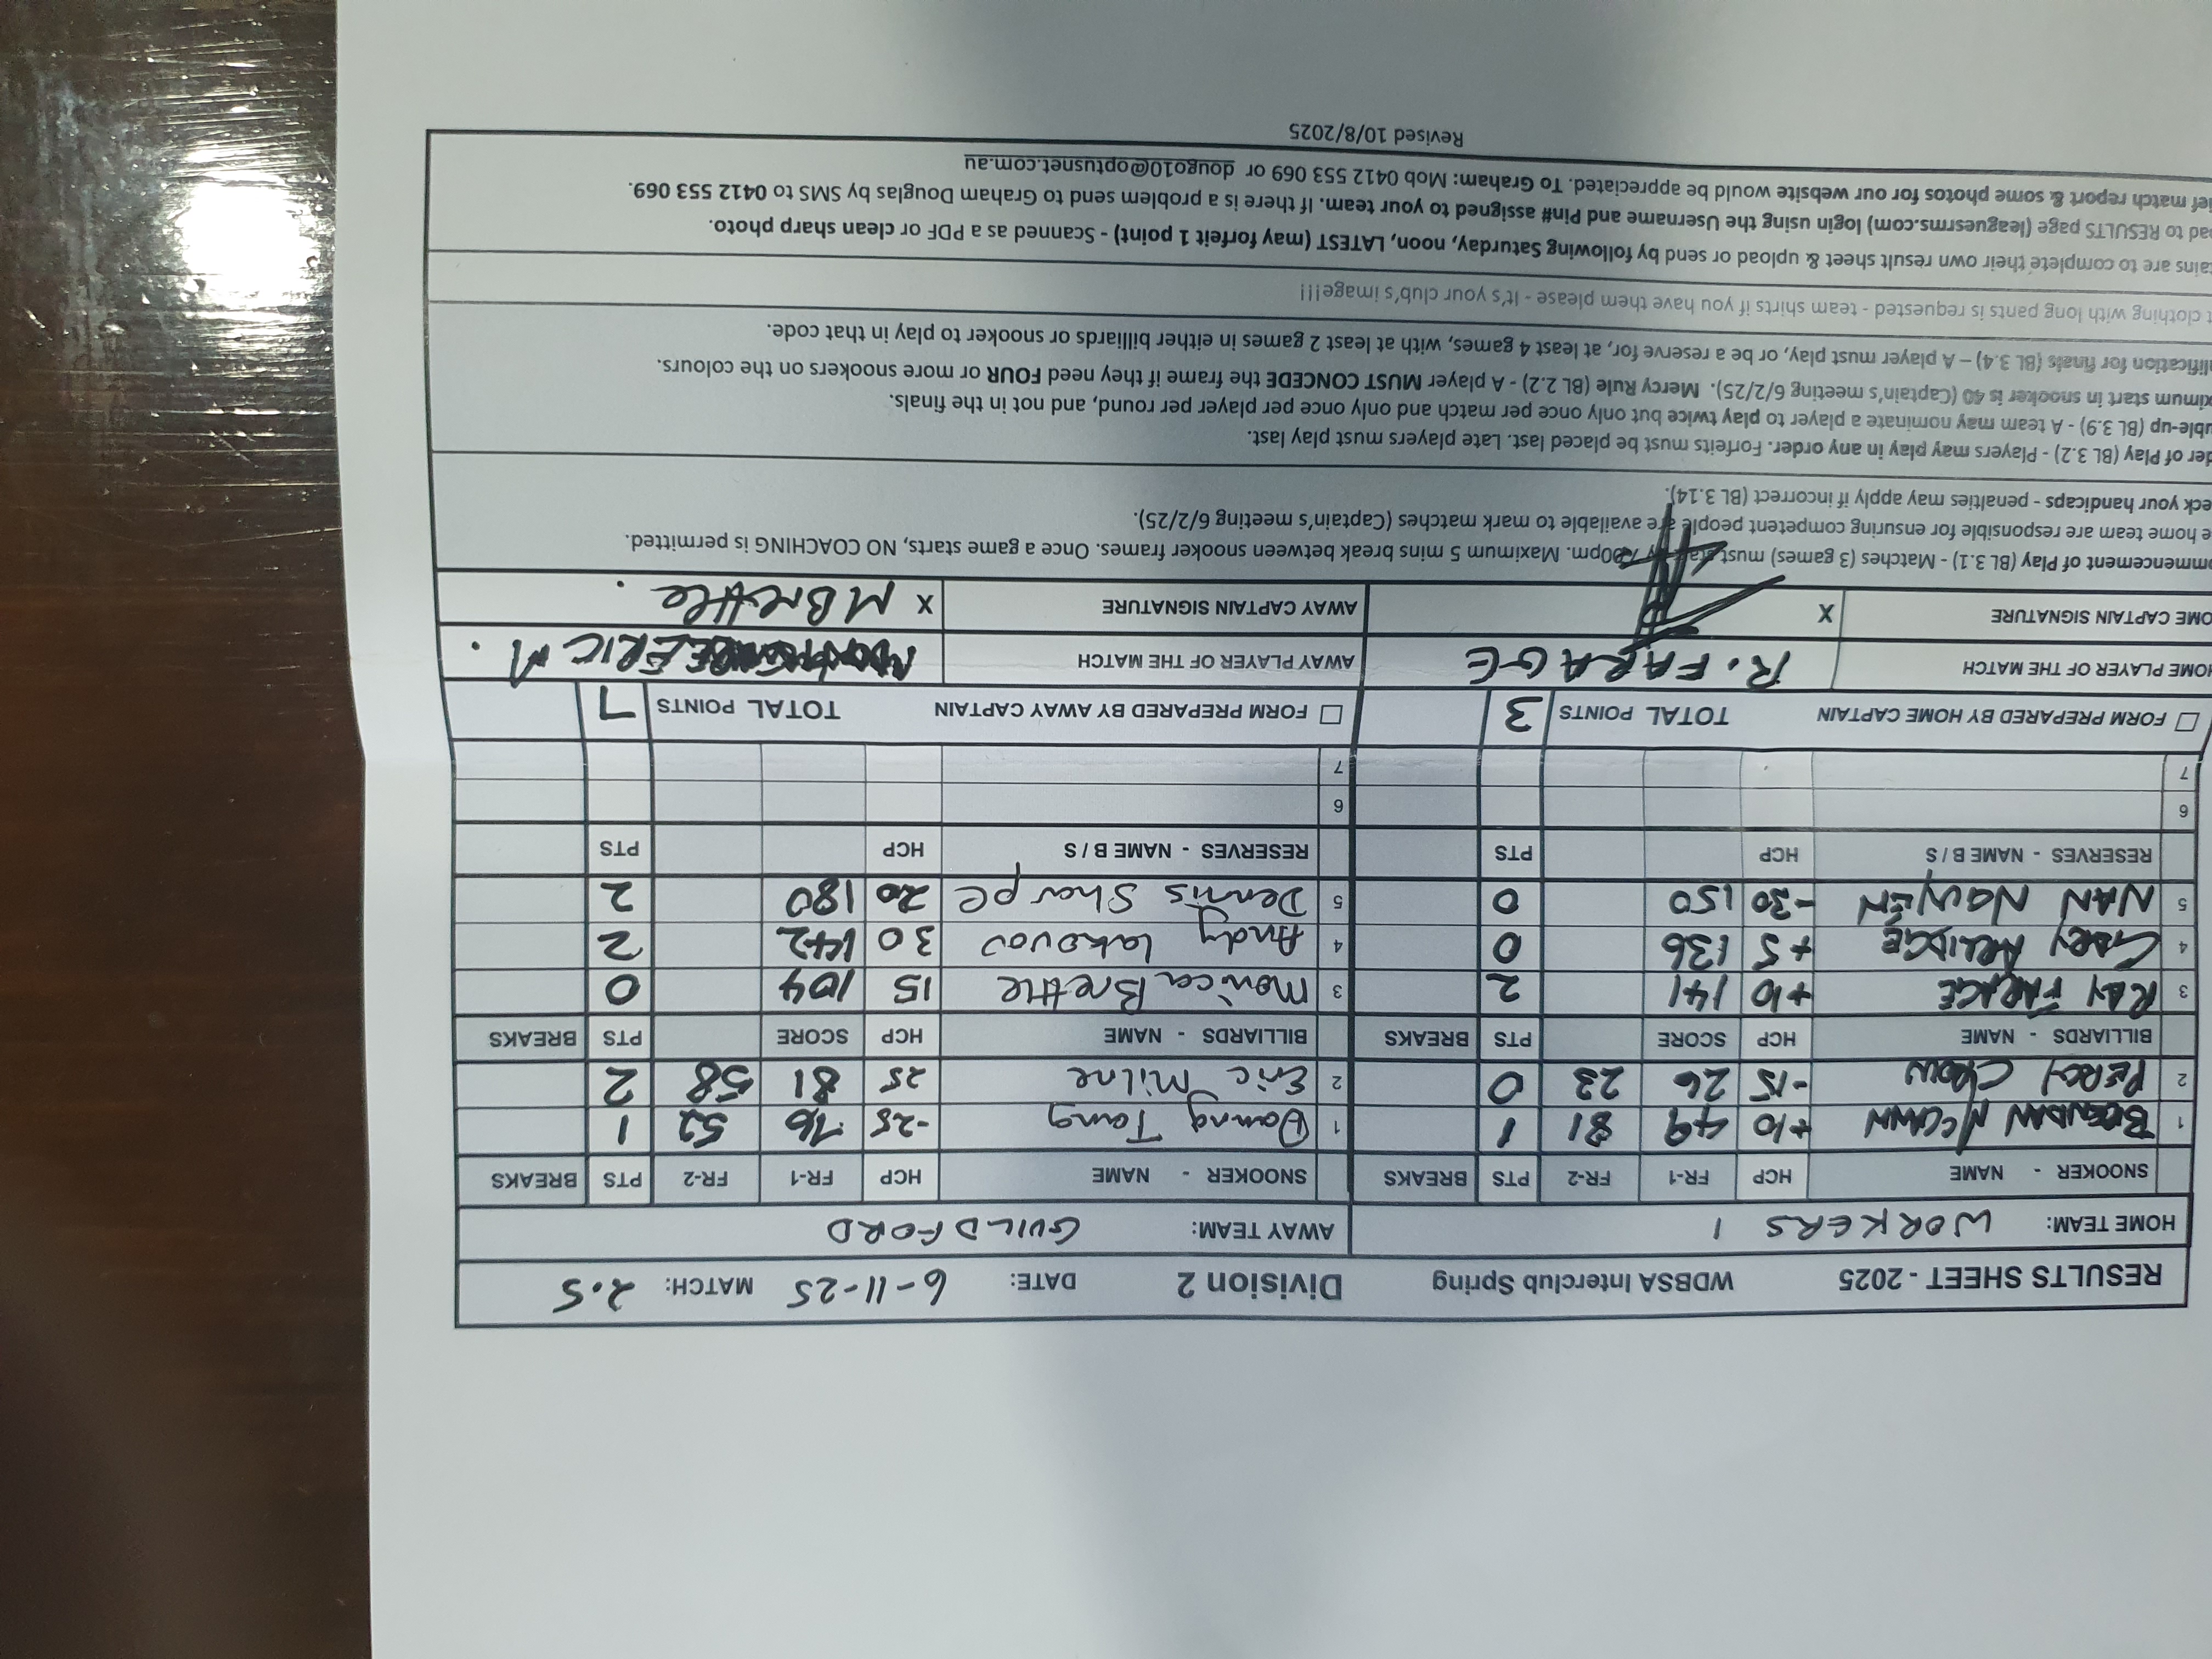 RESULTS SHEET - 2025 WDBSA Interclub Spring Division 2 DATE: 6-11-25 MATCH: 2.5
HOME TEAM: WORKERS 1 AWAY TEAM: GUILDFORD
SNOOKER - NAME HCP FR-1 FR-2 PTS BREAKS SNOOKER - NAME HCP FR-1 FR-2 PTS BREAKS
1 BRENDAN MCCANN +10 49 81 1 1 Danny Tang -25 76 52 1
2 PERCY CHOW -15 26 23 0 2 Eric Milne 25 81 58 2
BILLIARDS - NAME HCP SCORE PTS BREAKS BILLIARDS - NAME HCP SCORE PTS BREAKS
3 RAY FARAGE +10 141 2 3 Monica Brettle 15 104 0
4 GARY ARLIDGE +5 136 0 4 Andy 30 142 2
5 NAN NGUYEN -30 150 0 5 Dennis Sharpe 20 180 2
RESERVES - NAME B / S HCP PTS RESERVES - NAME B / S HCP PTS
6 6
7 7
FORM PREPARED BY HOME CAPTAIN TOTAL POINTS 3 FORM PREPARED BY AWAY CAPTAIN TOTAL POINTS 7
HOME PLAYER OF THE MATCH R. FARAGE AWAY PLAYER OF THE MATCH ERIC M.
OME CAPTAIN SIGNATURE X AWAY CAPTAIN SIGNATURE X M Brettle.
ommencement of Play (BL 3.1) - Matches (3 games) must start by 7.00pm. Maximum 5 mins break between snooker frames. Once a game starts, NO COACHING is permitted.
e home team are responsible for ensuring competent people are available to mark matches (Captain's meeting 6/2/25).
eck your handicaps - penalties may apply if incorrect (BL 3.14).
der of Play (BL 3.2) - Players may play in any order. Forfeits must be placed last. Late players must play last.
uble-up (BL 3.9) - A team may nominate a player to play twice but only once per match and only once per player per round, and not in the finals.
ximum start in snooker is 40 (Captain's meeting 6/2/25). Mercy Rule (BL 2.2) - A player MUST CONCEDE the frame if they need FOUR or more snookers on the colours.
lification for finals (BL 3.4) – A player must play, or be a reserve for, at least 4 games, with at least 2 games in either billiards or snooker to play in that code.
t clothing with long pants is requested - team shirts if you have them please - It's your club's image!!!
tains are to complete their own result sheet & upload or send by following Saturday, noon, LATEST (may forfeit 1 point) - Scanned as a PDF or clean sharp photo.
ad to RESULTS page (leaguesrms.com) login using the Username and Pin# assigned to your team. If there is a problem send to Graham Douglas by SMS to 0412 553 069.
ief match report & some photos for our website would be appreciated. To Graham: Mob 0412 553 069 or dougo10@optusnet.com.au
Revised 10/8/2025